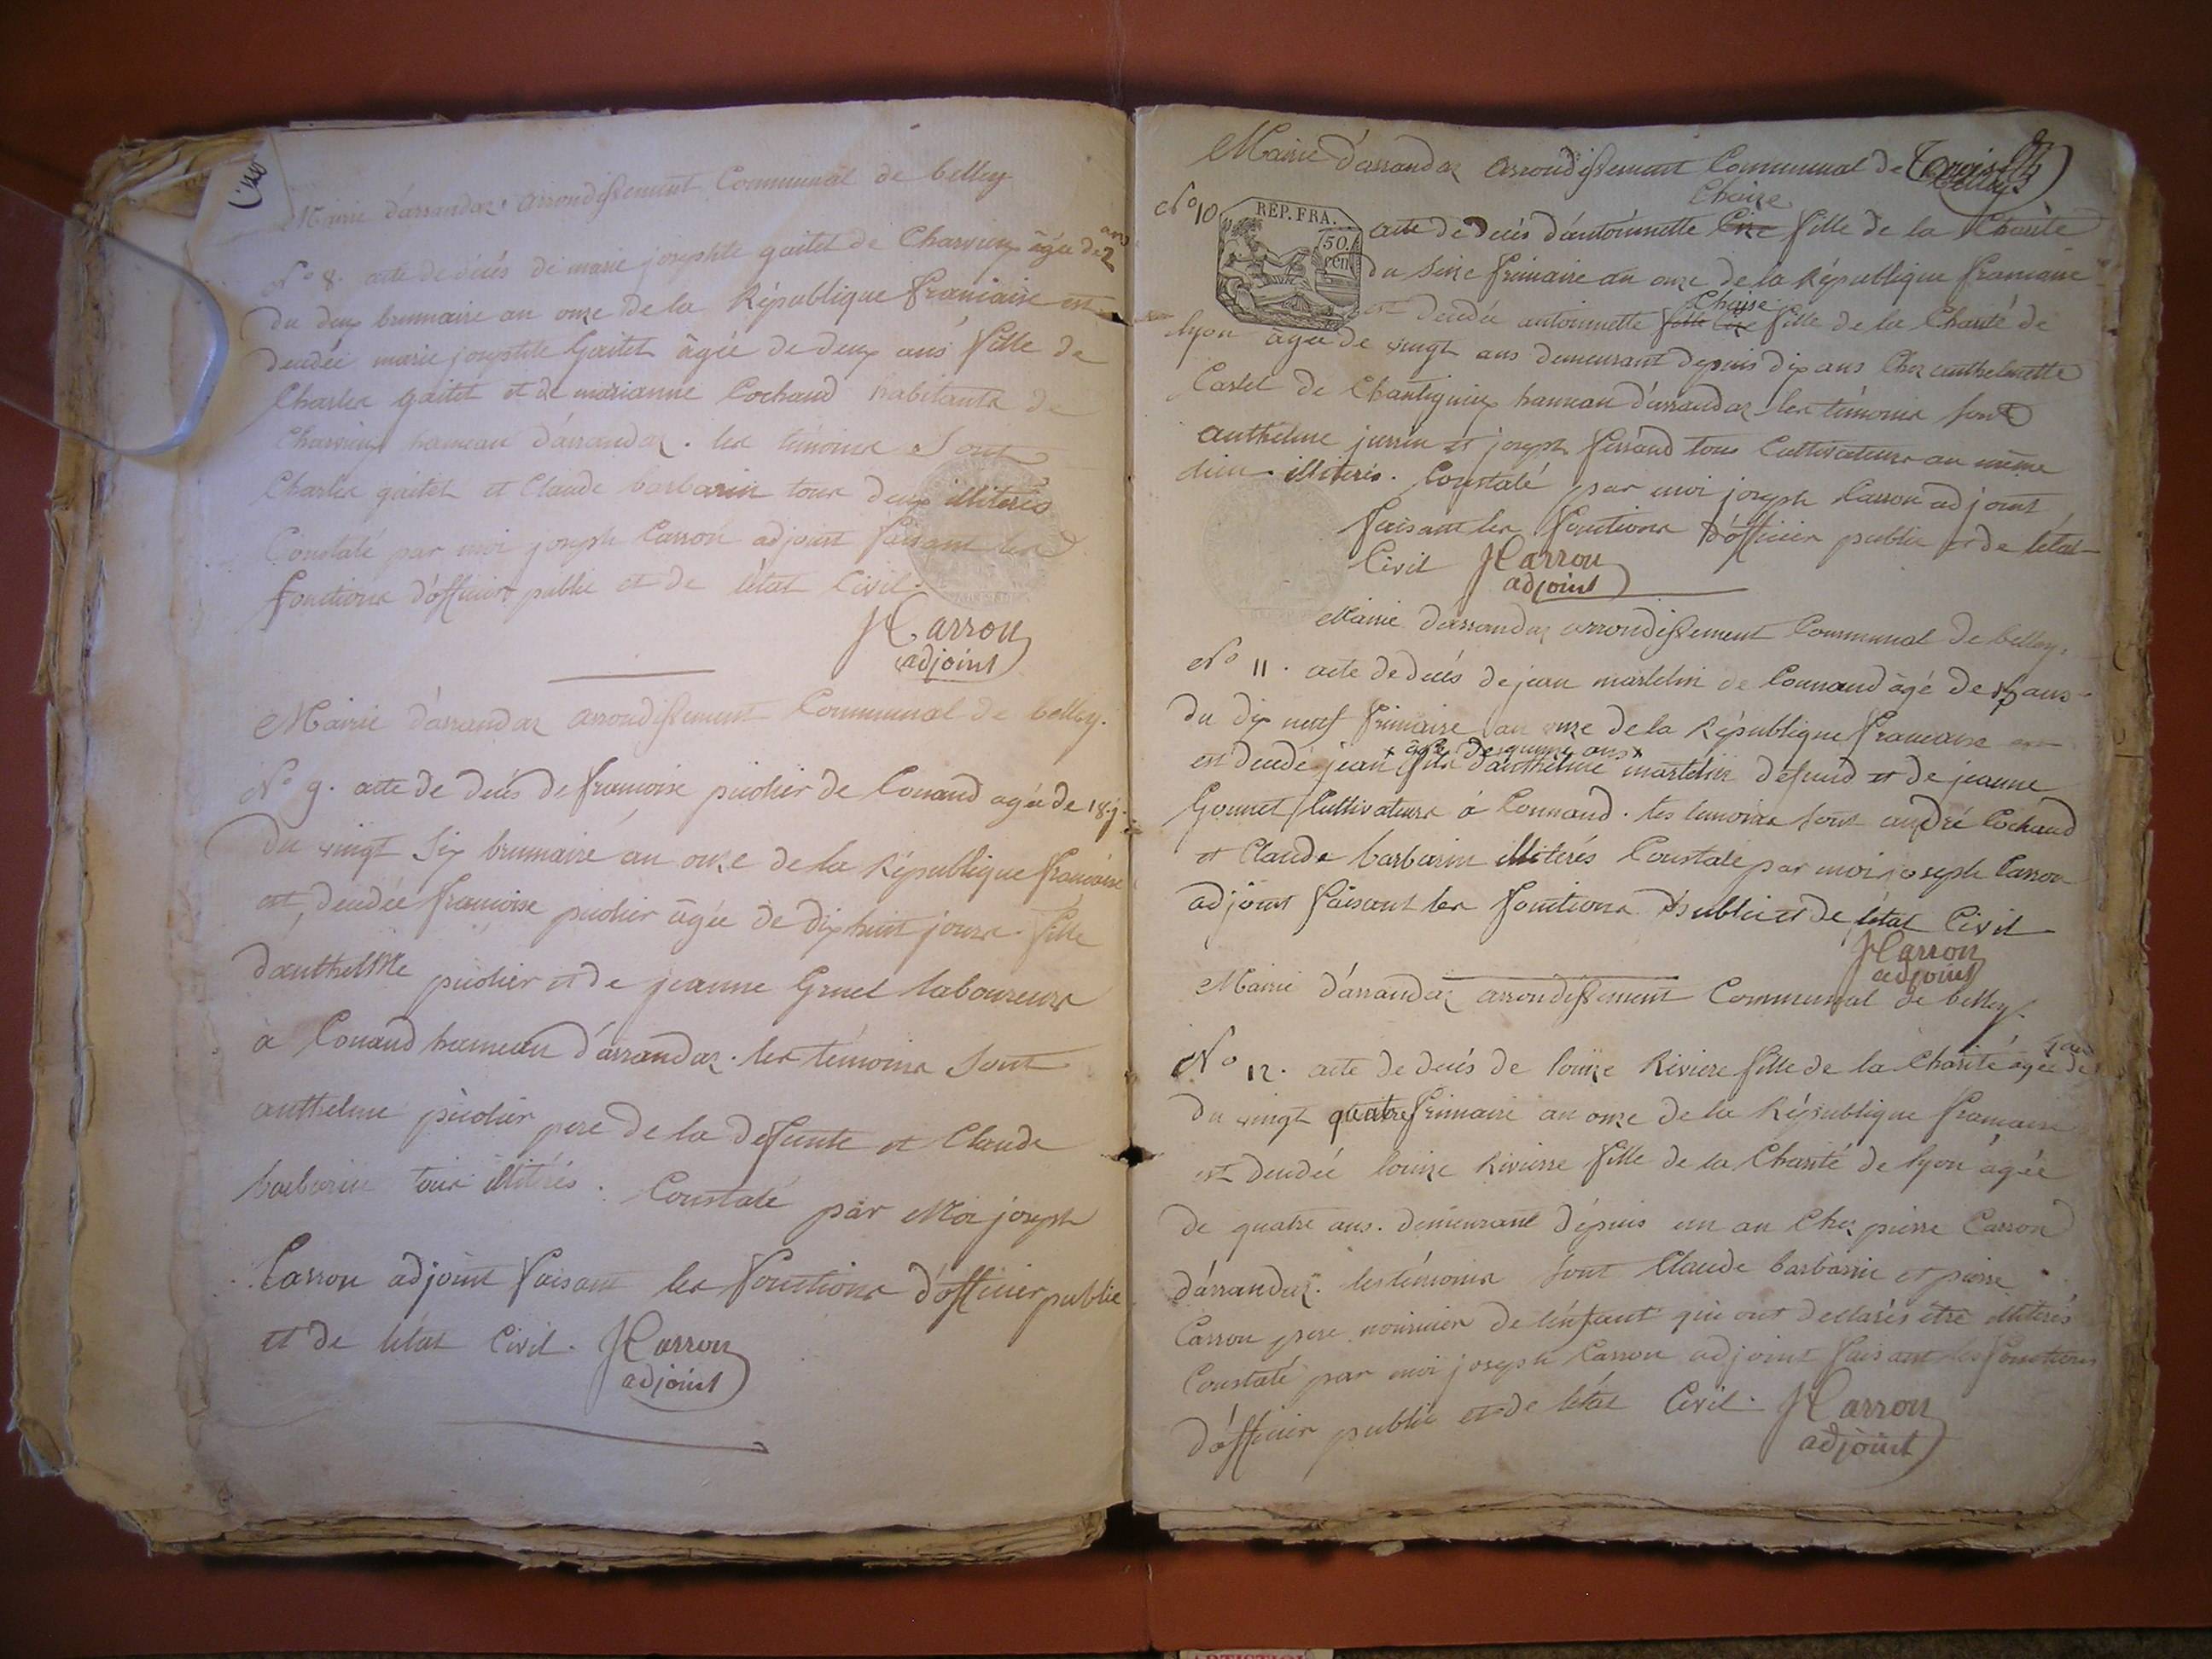 Mairie d'arrandas arrondissement Communal de belley
N° 8. acte de décés de marie josephte gaitet de Charvieux âgée de 2 ans
du deux brumaire an onze de la République francaise est
decedée marie josephte Gaitet âgée de deux ans fille de
Charles gaitet et de marianne Cochaud habitants de
Charvieux hameau d'arrandas. les témoins sont
Charles gaitet et Claude barbarin tous deux illiterés
Constaté par moi joseph Carron adjoint faisant les
fonctions d'officier public et de l'état Civil.
JCarron
adjoint
Mairie d'arrandas arrondissement Communal de belley.
N° 9. acte de décés de francoise picolier de Conand agée de 18 j.
Du vingt six brumaire an onze de la République francaise
est, decedée francoise picolier âgée de dix huit jours. fille
d'anthelme picolier et de jeanne Gruel laboureurs
à Conand hameau d'arrandas. les témoins sont
anthelme picolier pere de la defunte et Claude
barbarin tous illiterés. Constaté par Moi joseph
Carron adjoint faisant les fonctions d'officier public
et de l'état Civil. JCarron
adjoint
Mairie d'arrandas arrondissement Communal de belley
Chaize
N° 10 REP. FRA. 50. cen acte de decés d'antoinette fille de la Charité
du seize frimaire an onze de la République francaise
Chaise
est decedée antoinette fille de la Charité de
lyon âgée de vingt ans demeurant depuis dix ans Chez anthelmette
Carlet de Chantignieux hameau d'arrandas les témoins sont
anthelme jurron et joseph ferrand tous Cultivateurs au même
lieu. illiterés. Constaté par moi joseph Carron adjoint
faisant les fonctions d'officier public et de l'état
Civil JCarron
adjoint
Mairie d'arrandas arrondissement Communal de belley.
N° 11. acte de decés de jean martelin de Connand âgé de 15 ans
du dix neuf frimaire an onze de la République francaise
âgé de quinze ans
est decedé jean fils d'anthelme martelin defund et de jeanne
Gonnet Cultivateurs à Connand. les temoins sont andré Cochaud
et Claude barbarin illiterés Constaté par moi joseph Carron
adjoint faisant les fonctions public et de l'état Civil
JCarron
adjoint
Mairie d'arrandas arrondissement Communal de belley.
N° 12. acte de decés de louize Riviere fille de la Charité âgée de 4 ans
du vingt quatre frimaire an onze de la République francaise
est decedée louize Rivierre fille de la Charité de lyon âgée
de quatre ans. demeurant depuis un an Chez pierre Carron
d'arrandas. les témoins sont Claude barbarin et pierre
Carron pere nouricier de l'enfant qui ont declarés être illiterés
Constaté par moi joseph Carron adjoint faisant les fonctions
d'officier public et de l'état Civil. JCarron
adjoint